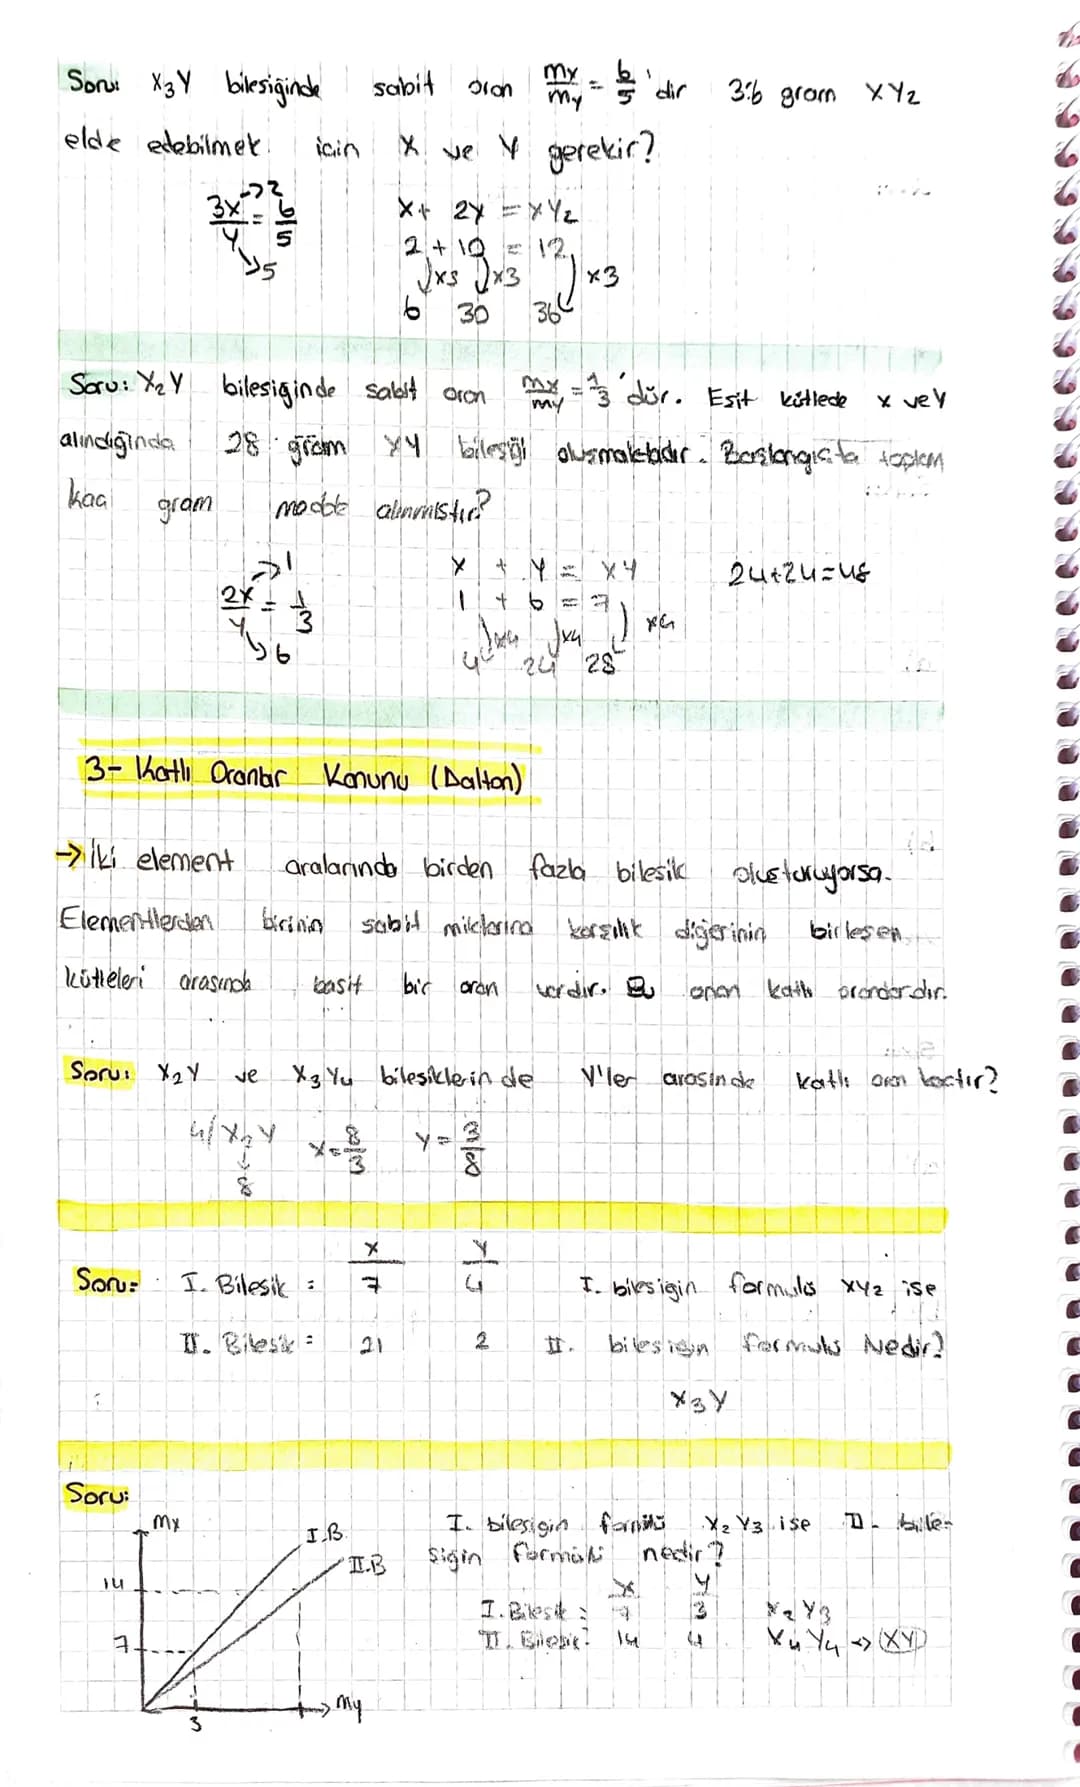 Soru: X3Y bileşiğinde sabit oran mx/my = 6/5 'dir 36 gram XY2
elde edebilmek için X ve Y gerekir?
3X/Y = 6/5 →2 →5
X + 2Y = XY2
2 + 10 = 12
x3 x3 x3
6 30 36
Soru: X2Y bileşiginde sabit oran mx/my = 1/3 'dür. Eşit kütlede x ve Y
alındığında 28 gram XY bileşiği oluşmaktadır. Başlangıçta toplam
kaç gram madde alınmıştır?
2X/Y = 1/3 →1 →6
X + Y = XY
1 + 6 = 7
x4 x4 x4
4 24 28
24+24=48
3- Katlı Oranlar Kanunu (Dalton)
→ İki element aralarında birden fazla bileşik oluşturuyorsa.
Elementlerden birinin sabit miktarına karşılık diğerinin birleşen
kütleleri arasında basit bir oran vardır. Bu oran katlı oranlardır.
Soru: X2Y ve X3Y4 bileşiklerinde Y'ler arasinda katlı oran kaçtır?
4/ X2Y X = 8/3 Y = 3/8
8
X Y
Soru: I. Bileşik : 7 4 I. bileşigin formulü XY2 ise
II. Bileşik = 21 2 II. bileşigin formülü Nedir?
X3Y
Soru:
I. bileşigin formülü X2Y3 ise II. bile-
şigin formülü nedir?
X Y
I. Bileşik : 7 3 X2Y3
II. Bileşik: 14 4 X4Y4 → XY
mx
I.B
II.B
14
7
3
my